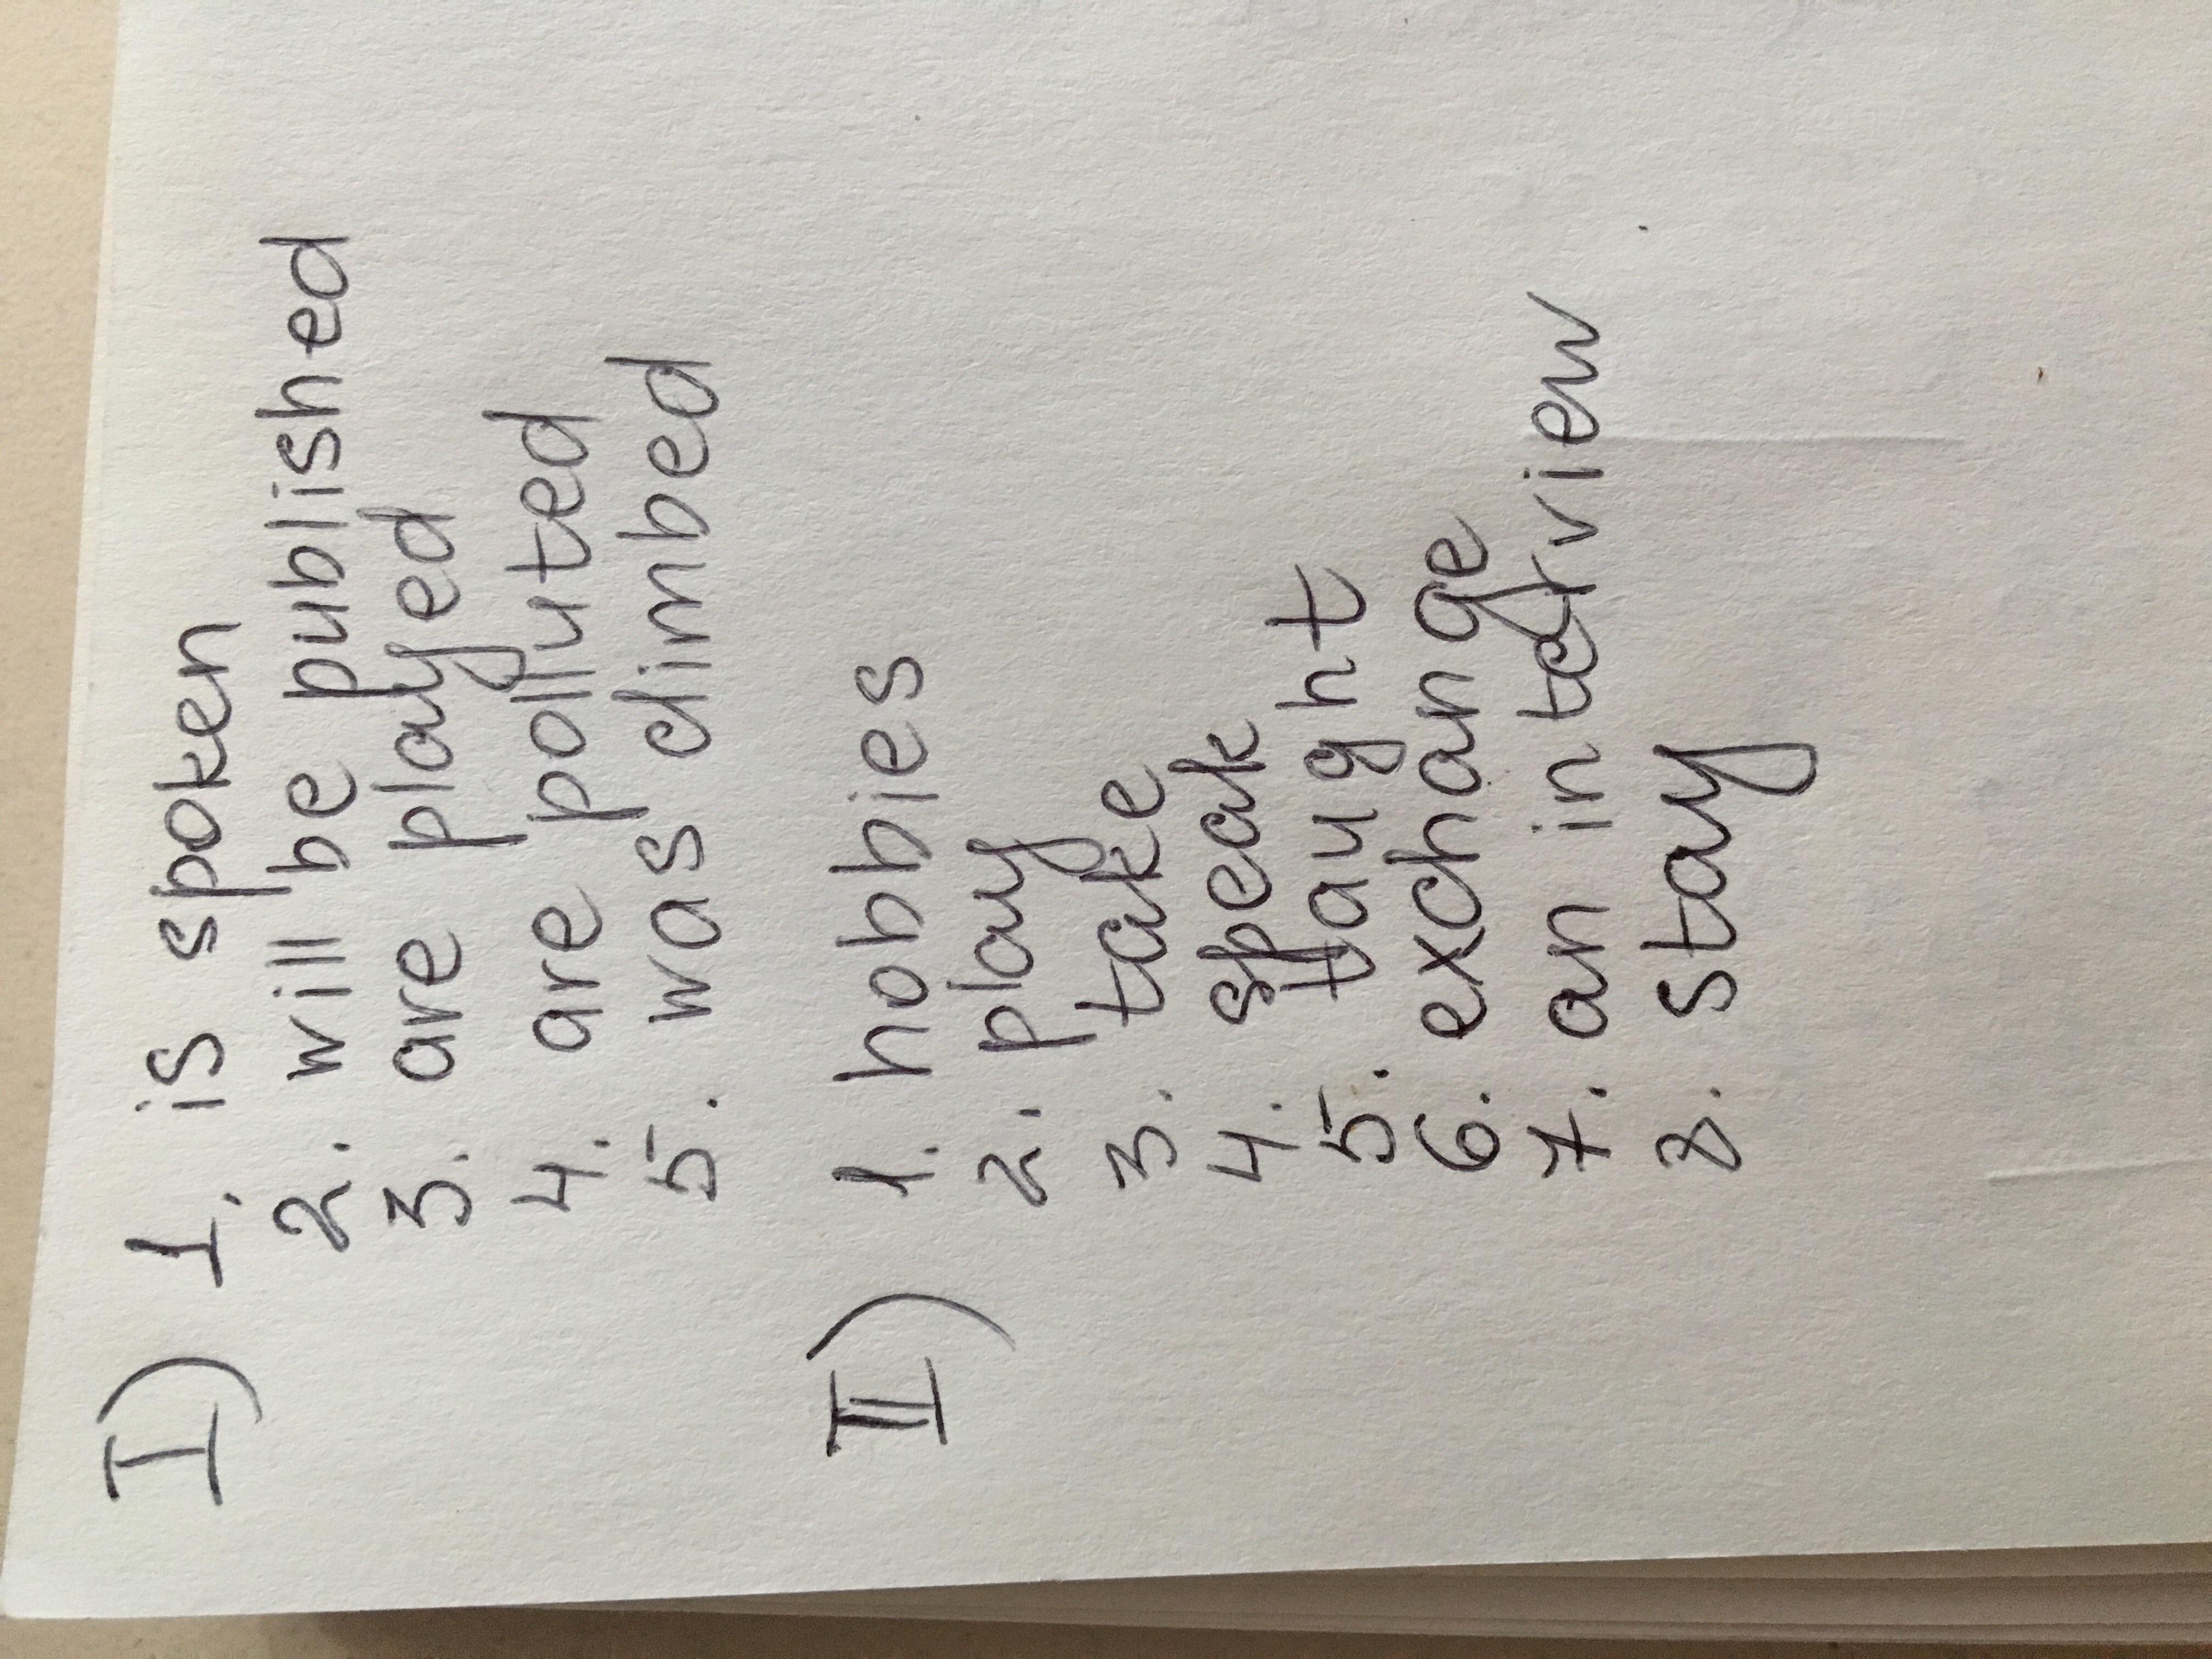 I) 1. is spoken
2. will be published
3. are played
4. are polluted
5. was climbed
II) 1. hobbies
2. play
3. take
4. speak
5. taught
6. exchange
7. an interview
8. stay